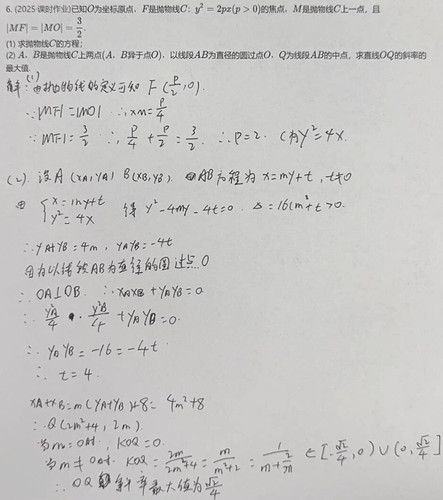 6. (2025·课时作业)已知O为坐标原点，F是抛物线C：y²=2px(p>0)的焦点，M是抛物线C上一点，且
|MF|=|MO|=3/2.
(1) 求抛物线C的方程；
(2) A，B是抛物线C上两点(A，B异于点O)，以线段AB为直径的圆过点O，Q为线段AB的中点，求直线OQ的斜率的
最大值.
解：(1) 由抛物线的定义可知 F(p/2, 0).
∵|MF|=|MO| ∴xM=p/4
∵|MF|=3/2 ∴p/4+p/2=3/2. ∴p=2. C为y²=4x.
(2). 设A(xA,yA) B(xB,yB). AB方程为x=my+t, t≠0
由 {x=my+t
y²=4x 得 y²-4my-4t=0. Δ=16(m²+t>0.
∴yA+yB=4m, yAyB=-4t
因为以线段AB为直径的圆过点O
∴OA⊥OB. ∴xAxB+yAyB=0
∴yA²/4·yB²/4+yAyB=0.
∴yAyB=-16=-4t
∴t=4.
xA+xB=m(yA+yB)+8=4m²+8
∴Q(2m²+4, 2m).
当m=0时, KOQ=0.
当m≠0时. KOQ=2m/2m²+4=m/m²+2=1/m+2/m ∈[-√2/4,0)∪(0,√2/4]
∴OQ斜率最大值为√2/4